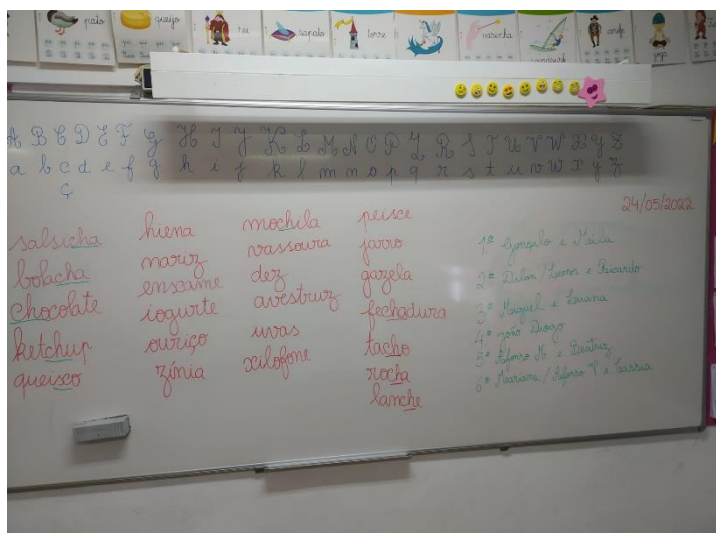 pato
queijo
rei
sapato
torre
varinha
A B C D E F G H I J K L M N O P Q R S T U V W X Y Z
a b c d e f g h i j k l m n o p q r s t u v w x y z
ç
24/05/2022
salsicha
bolacha
chocolate
ketchup
queisco
hiena
nariz
enxame
iogurte
ouriço
zínia
mochila
vassoura
dez
avestruz
uvas
xilofone
peisce
jarro
gazela
fechadura
tacho
rocha
lanche
1º Gonçalo e Keila
2º Dilan / Leonor e Ricardo
3º Miguel e Luana
4º João Diogo
5º Afonso M e Beatriz
6º Mariana / Afonso V e